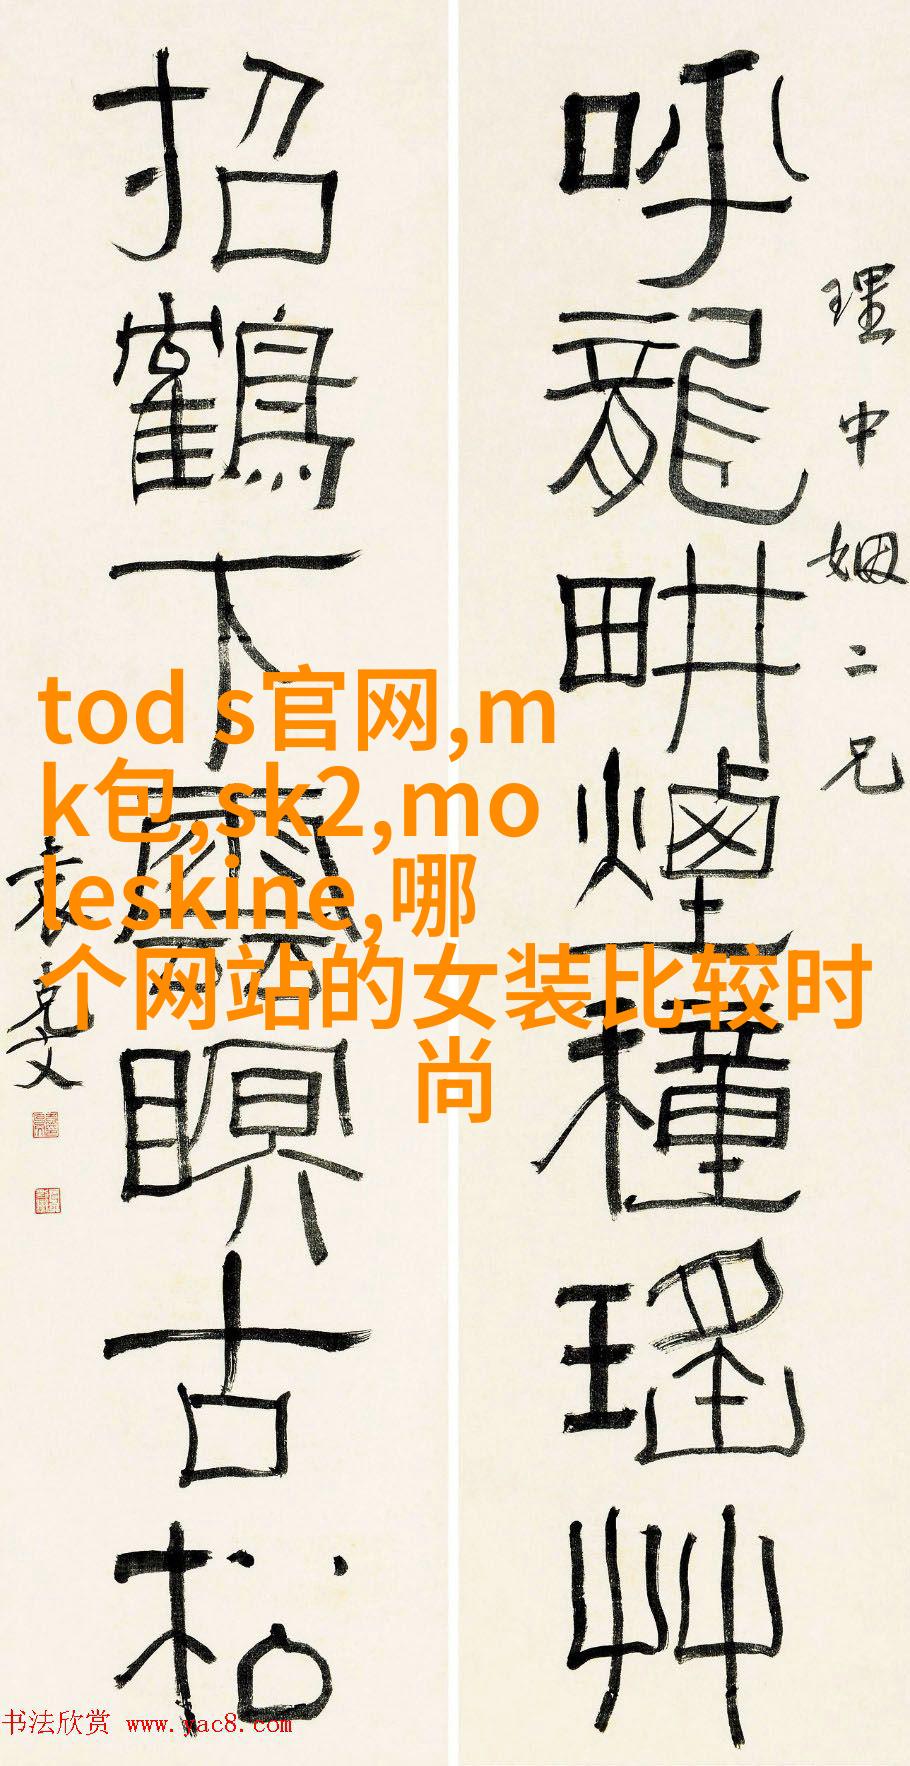 理中姻二兄
呼龍畊煙種瑤艸
招鶴下 瞑古松
袁克文
tod s官网,m
k包,sk2,mo
leskine,哪
个网站的女装比较时
尚
书法欣赏 www.yac8.com